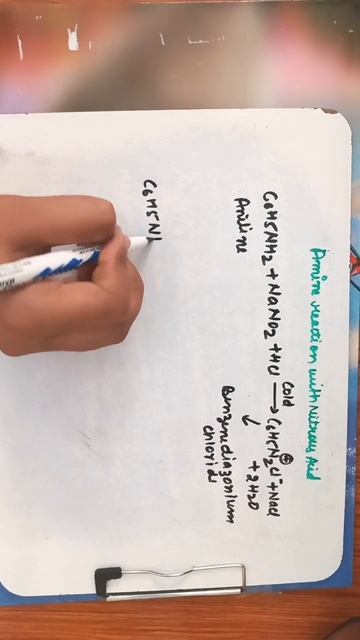 Amine reaction with Nitrous Acid
C6H5NH2 + NaNO2 + HCl ⟶ C6H5N2Cl⁻ + NaCl
cold
⊕
+ 2H2O
Aniline
↓
Benzenediazonium
chloride
C6H5N